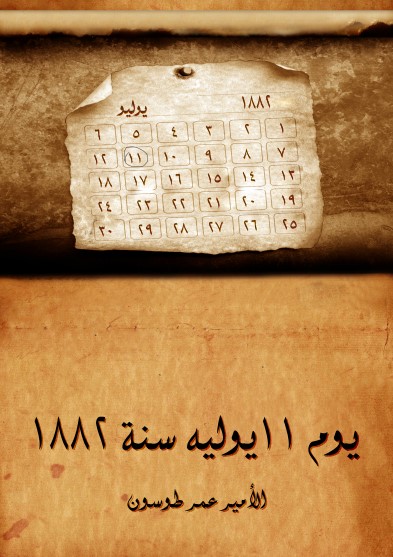 ١٨٨٢ يوليو
١ ٢ ٣ ٤ ٥ ٦
٧ ٨ ٩ ١٠ ١١ ١٢
١٣ ١٤ ١٥ ١٦ ١٧ ١٨
١٩ ٢٠ ٢١ ٢٢ ٢٣ ٢٤
٢٥ ٢٦ ٢٧ ٢٨ ٢٩ ٣٠
يوم ١١ يوليه سنة ١٨٨٢
الأمير عمر طوسون